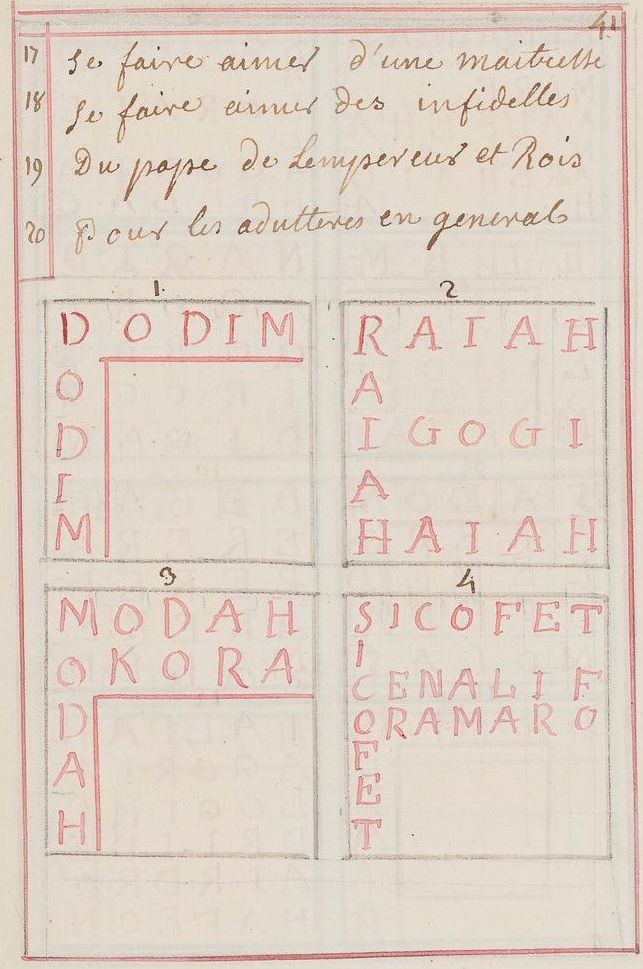 41
17 Se faire aimer d'une maitresse
18 Se faire aimer des infidelles
19 Du pape de Lempereur et Rois
20 Pour les adulteres en general
1
D O D I M
O
D
I
M
2
R A I A H
A
I G O G I
A
H A I A H
3
M O D A H
O K O R A
D
A
H
4
S I C O F E T
I
C E N A L I F
O R A M A R O
F
E
T